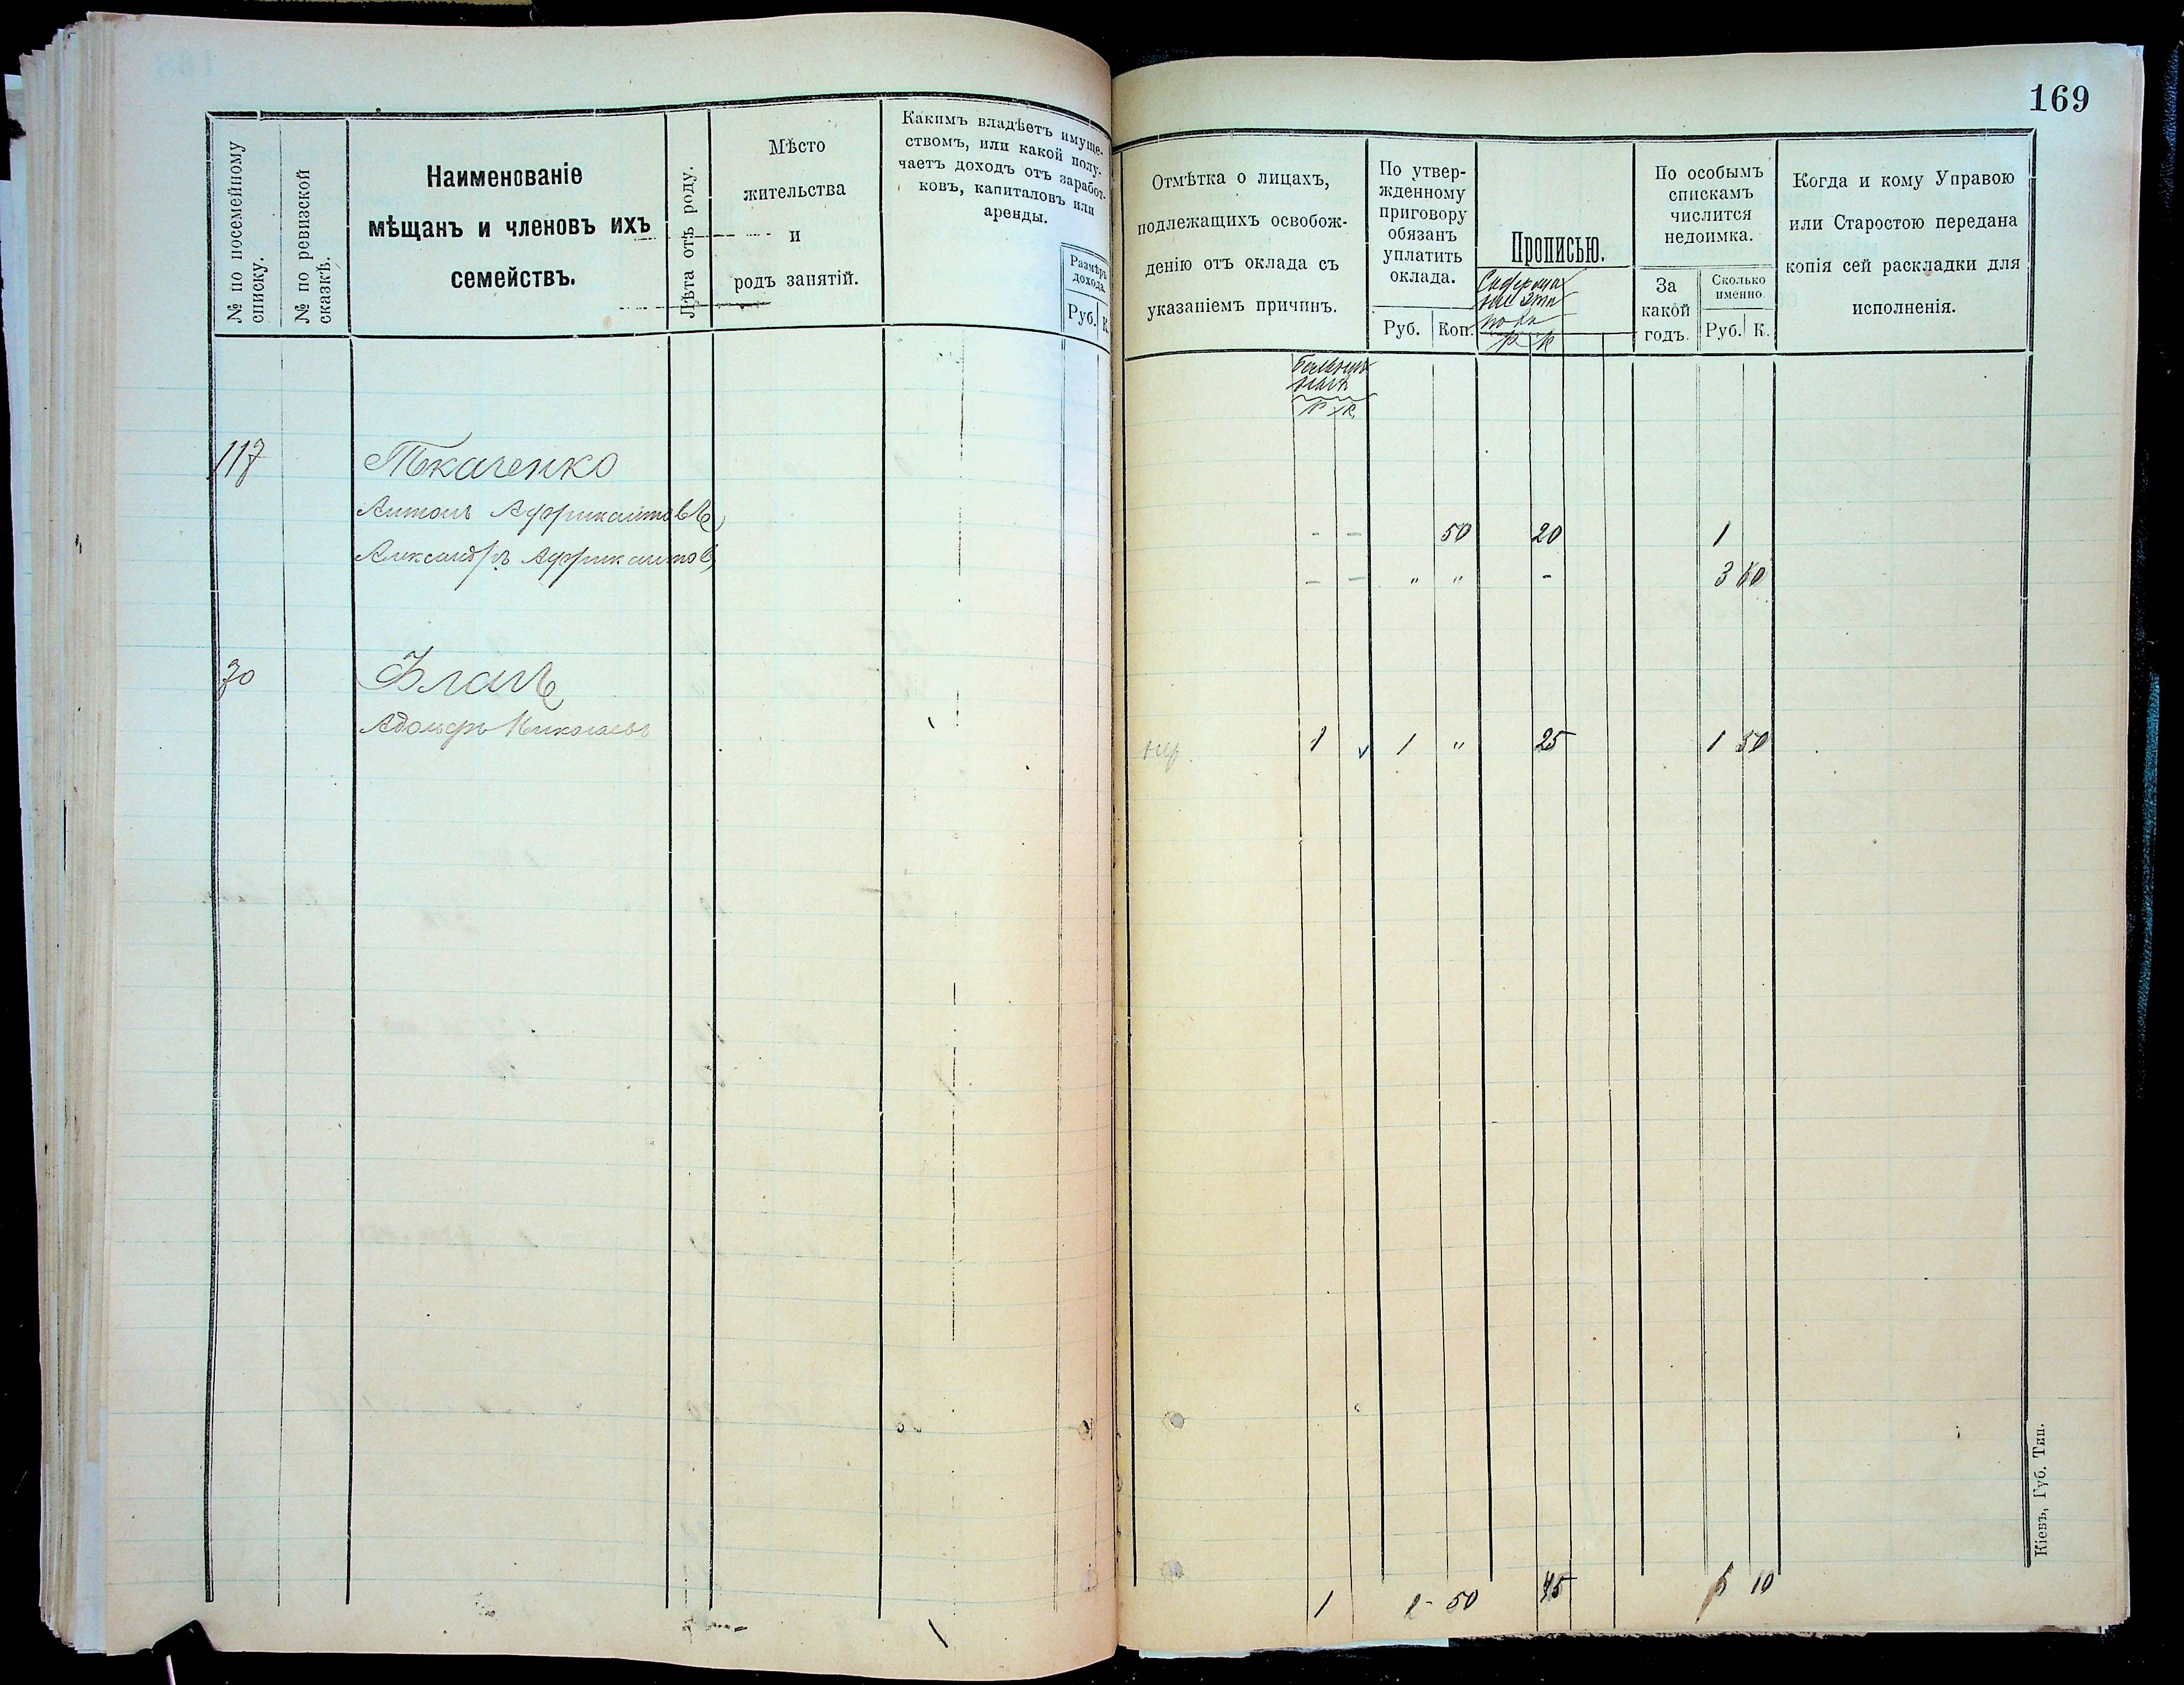 169
№ по посемейному
списку.
№ по ревизской
сказкѣ.
Наименованіе
мѣщанъ и членовъ ихъ
семействъ.
Лѣта отъ роду.
Мѣсто
жительства
и
родъ занятій.
Какимъ владѣетъ имуще-
ствомъ, или какой полу-
чаетъ доходъ отъ заработ-
ковъ, капиталовъ или
аренды.
Размѣръ
дохода.
Руб. К.
Отмѣтка о лицахъ,
подлежащихъ освобож-
денію отъ оклада съ
указаніемъ причинъ.
По утвер-
жденному
приговору
обязанъ
уплатить
оклада.
Руб. Коп.
Прописью.
Р К
По особымъ
спискамъ
числится
недоимка.
За
какой
годъ.
Сколько
именно
Руб. К.
Когда и кому Управою
или Старостою передана
копія сей раскладки для
исполненія.
Р К
117 Ткаченко
Антонъ Африкантовъ - - 50 20 1
Александръ Африкантов - - " " - 3 60
70
Адольфъ Николаевъ 1 1 " 25 1 50
1 1- 50 45 10
Кіевъ, Губ. Тип.